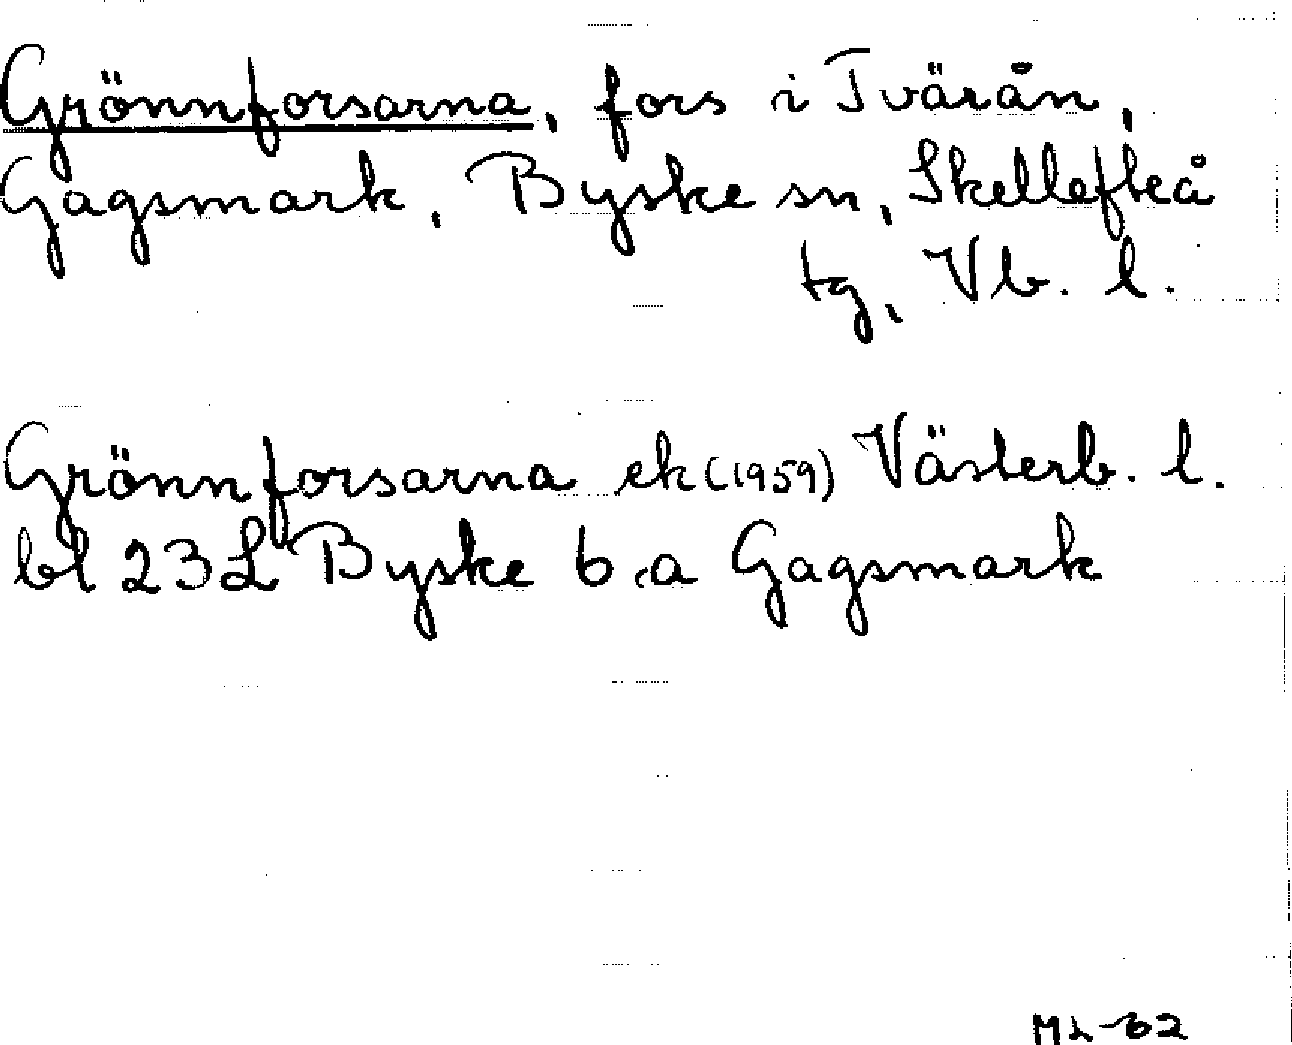 Grönnforsarna, fors i Tvärån,
Gagsmark, Byske sn, Skellefteå
tg, Vb. l.
Grönnforsarna ek (1959) Västerb. l.
bl 23L Byske 6 a Gagsmark
ML-62